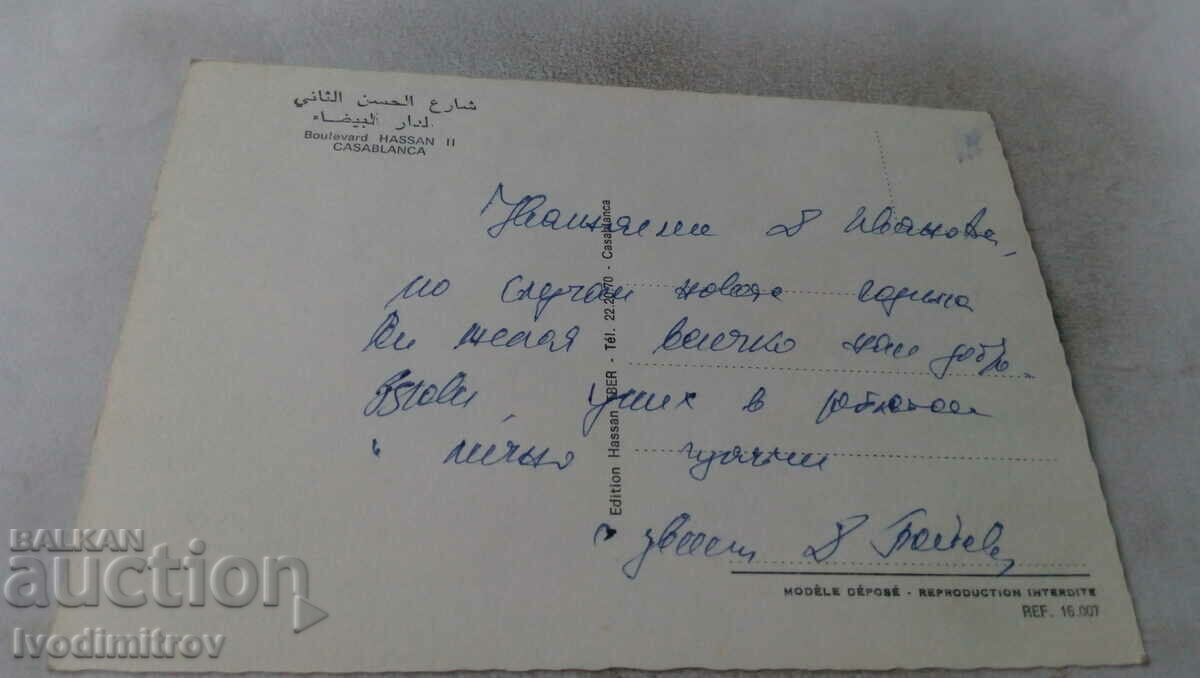 شارع الحسن الثاني
لدار البيضاء
Boulevard HASSAN II
CASABLANCA
Edition Hassan - Tél. 22.20.70 - Casablanca
Уважаеми Д Иванова,
по случай новата година
Ви желая всичко най добро.
Здраве, успех в работата
и лично щастие
с уважение Д
MODÈLE DÉPOSÉ - REPRODUCTION INTERDITE
REF. 16.007
BALKAN
auction
Ivodimitrov